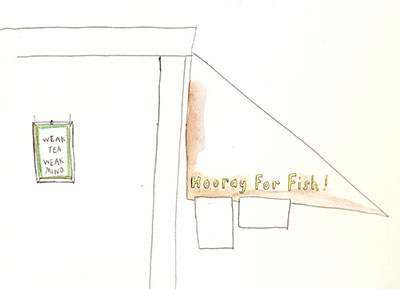 WEAK
TEA
WEAK
MIND
Hooray For Fish!